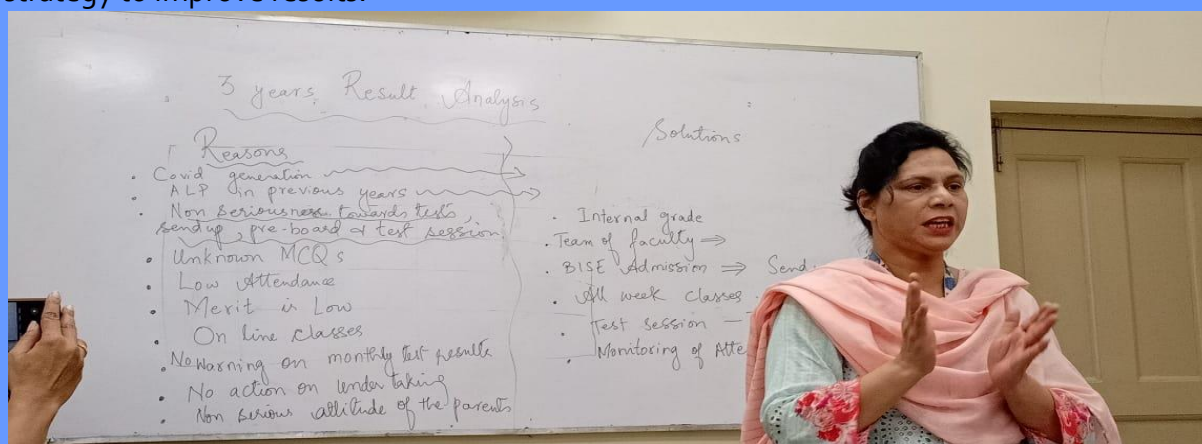 strategy to improve results.
3 years Result Analysis
Reasons
• Covid generation
• ALP in previous years
• Non seriousness towards tests,
sendup, pre-board & test session
• Unknown MCQs
• Low Attendance
• Merit is Low
On line classes
• No Warning on monthly test results
• No action on under taking
• Non serious attitude of the parents
Solutions
• Internal grade
• Team of faculty ⇒
• BISE Admission ⇒ Send
• All week classes
• Test session —
• Monitoring of Atte